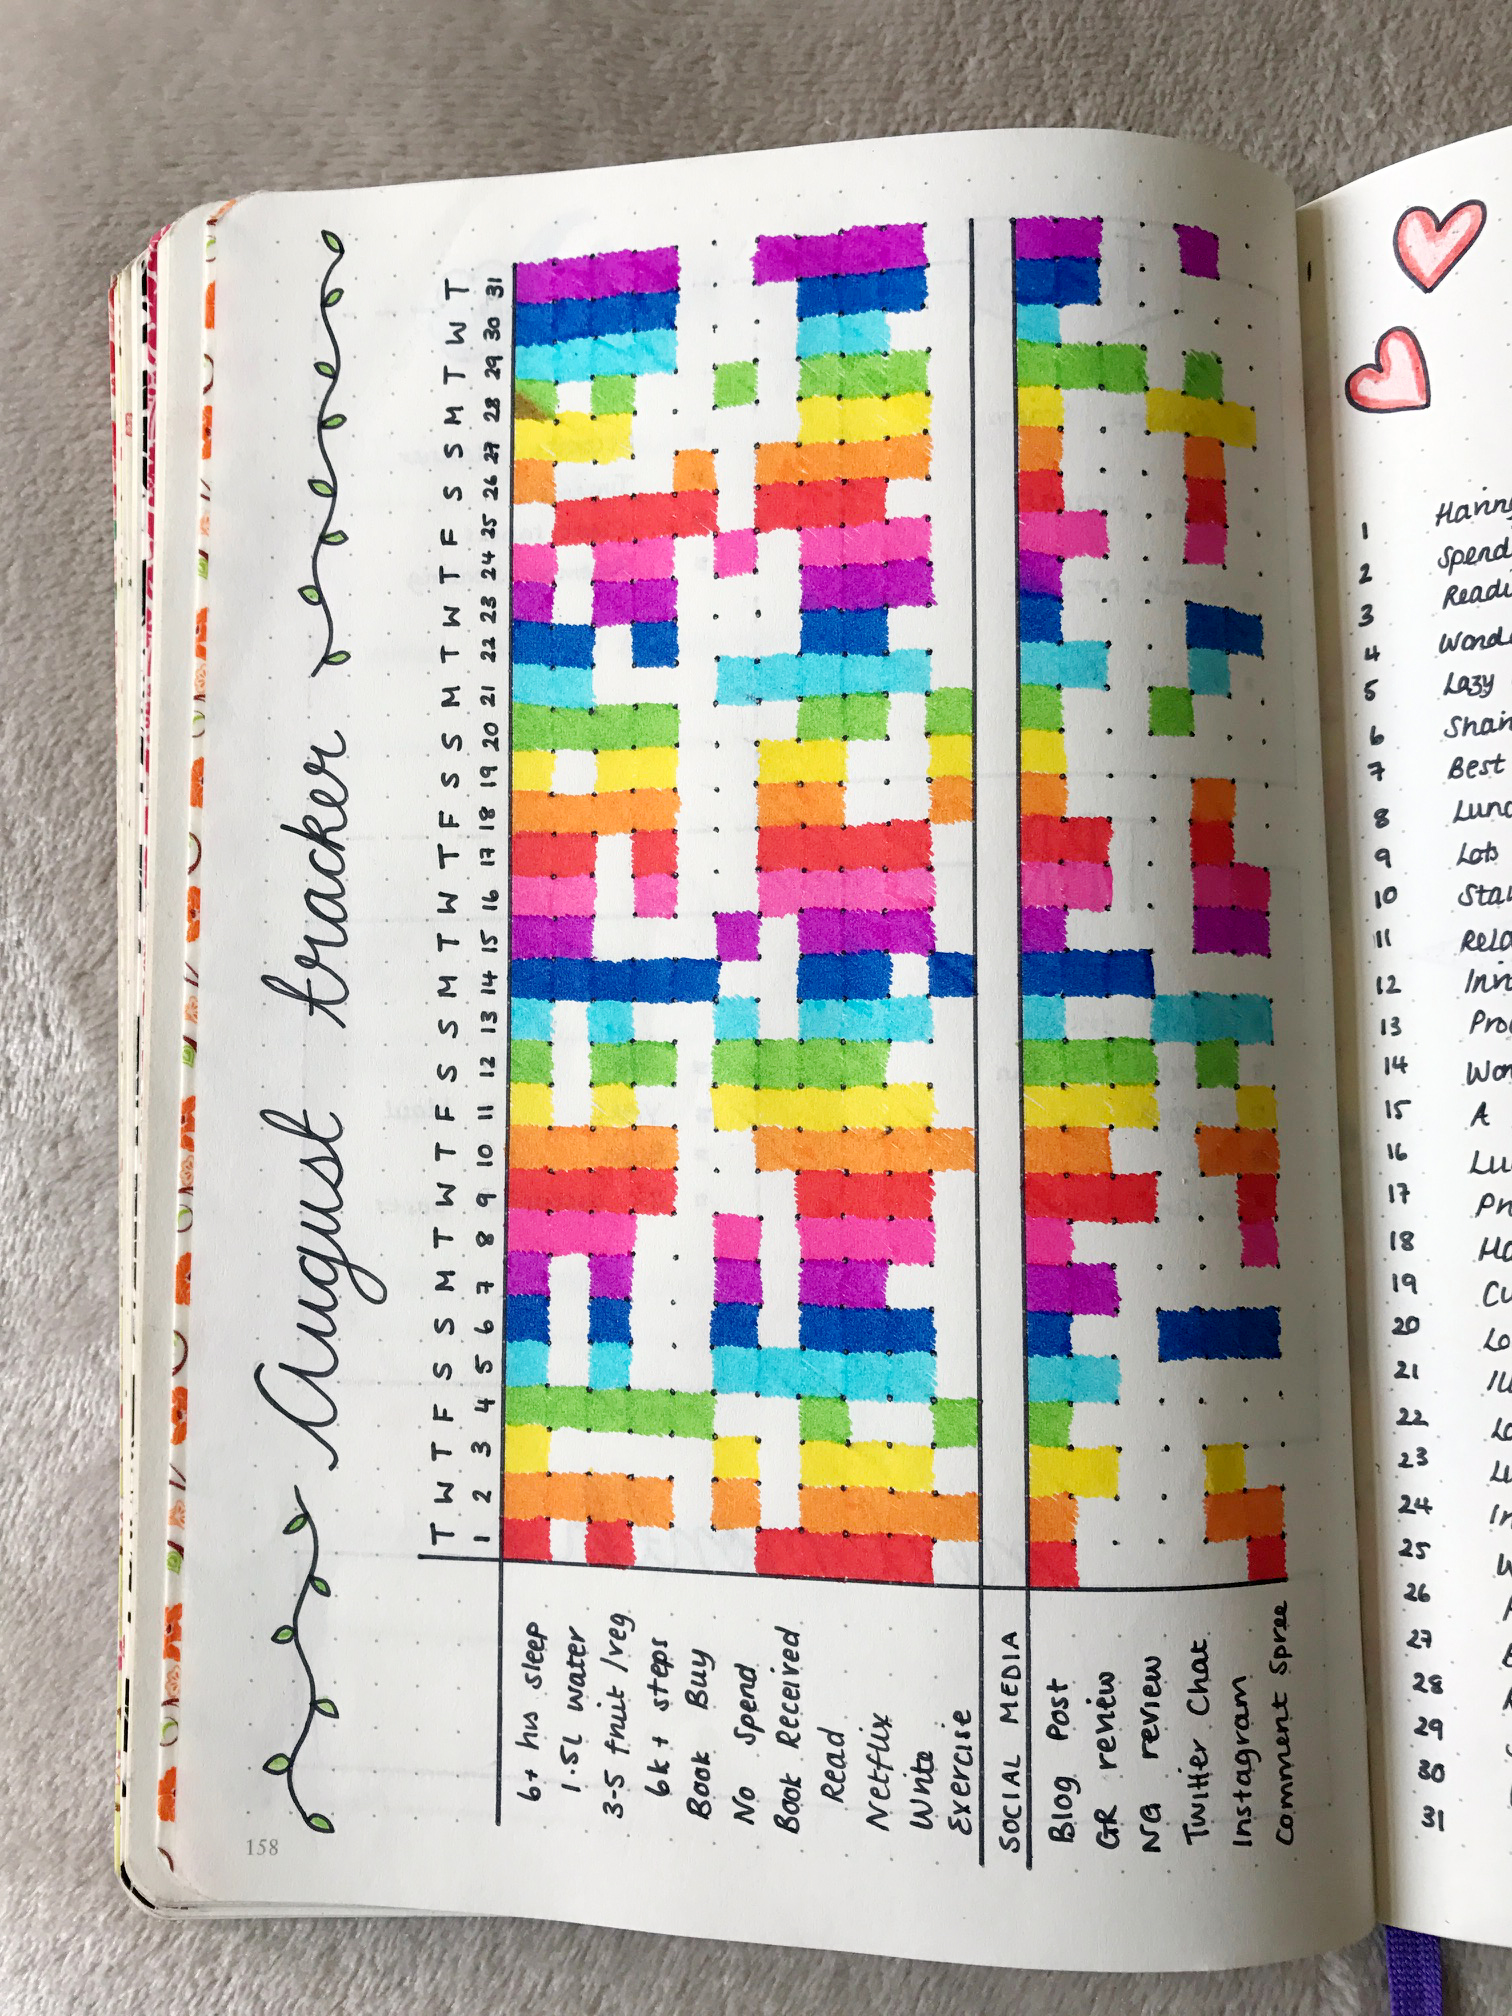 August tracker
T W T F S S M T W T F S S M T W T F S S M T W T F S S M T W T
1 2 3 4 5 6 7 8 9 10 11 12 13 14 15 16 17 18 19 20 21 22 23 24 25 26 27 28 29 30 31
6+ hrs sleep
1.5L water
3-5 fruit/veg
6k+ steps
Book Buy
No Spend
Book Received
Read
Netflix
Write
Exercise
SOCIAL MEDIA
Blog Post
GR review
NG review
Twitter Chat
Instagram
Comment Spree
158
1
2 Spend
3
4
5 Lazy
6
7 Best
8
9 Lots
10
11
12
13
14
15 A
16
17
18
19
20
21
22
23
24
25
26
27
28
29
30
31